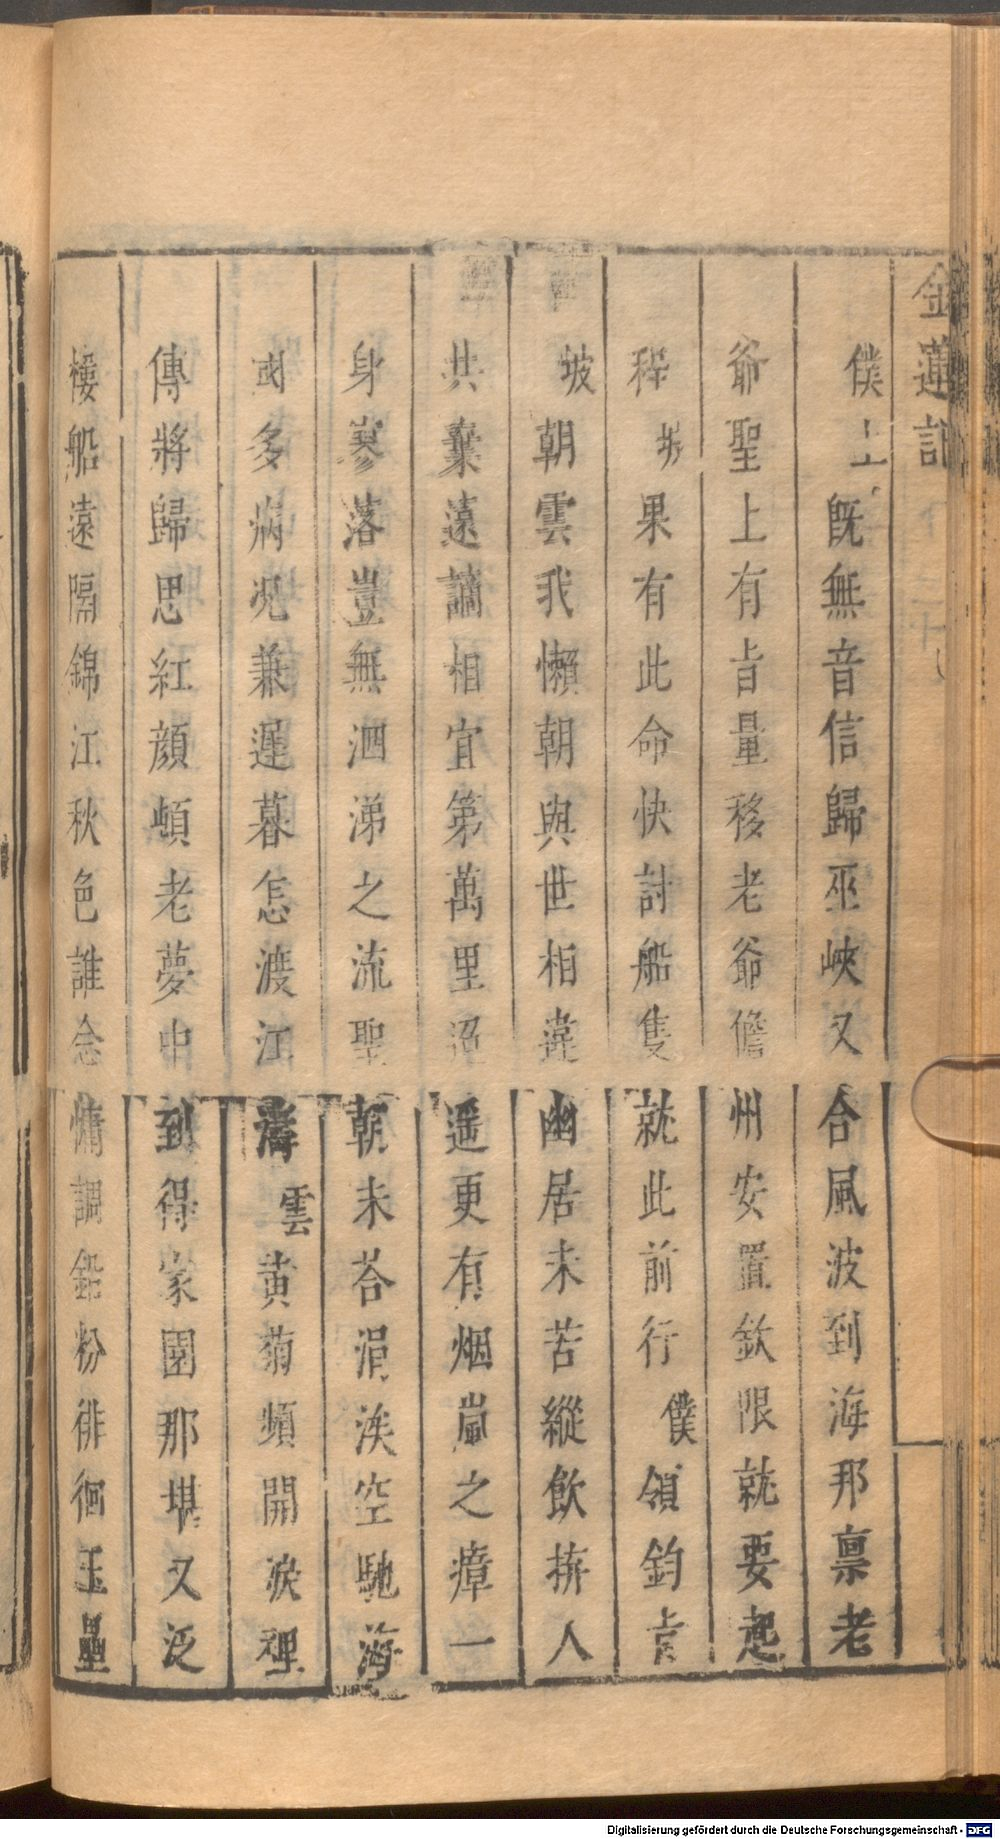 金蓮記
僕上既無音信歸巫峽又合風波到海那禀老
爺聖上有旨量移老爺儋州安置欽限就要起
程坡果有此命快討船隻就此前行僕領鈞旨
坡朝雲我懶朝與世相違幽居未苦縱飲拚人
共棄遠謫相宜第萬里迢遥更有烟嵐之瘴一
身寥落豈無泗涕之流聖朝未荅涓涘空馳海
國多病况兼遲暮怎渡江濤雲黄菊頻開淚裡
傳將歸思紅顔頓老夢中到得家園那堪又泛
樓船遠隔錦江秋色誰念慵調鉛粉徘徊玉壘
Digitalisierung gefördert durch die Deutsche Forschungsgemeinschaft - DFG